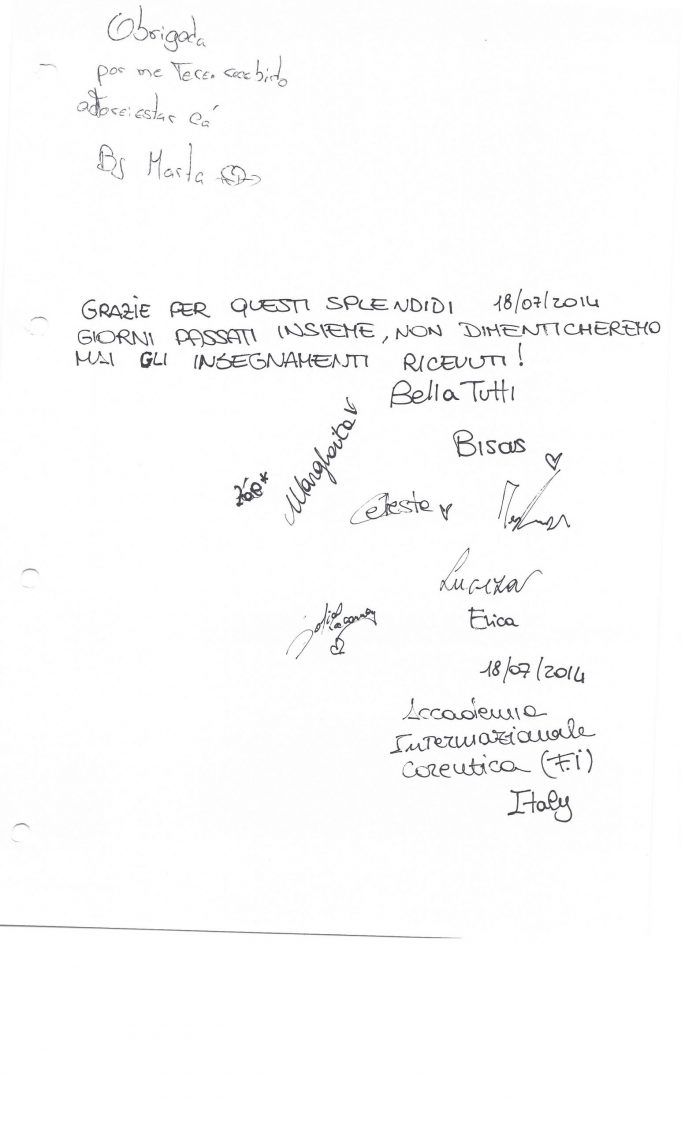 Obrigada
por me recebido
adorei estar cá
Bj Marta
GRAZIE PER QUESTI SPLENDIDI 18/07/2014
GIORNI PASSATI INSIEME, NON DIMENTICHEREMO
MAI GLI INSEGNAMENTI RICEVUTI!
Bella Tutti
Bisous
Margherita
Celeste
Erica
18/07/2014
Accademia
Internazionale
Coreutica (F.i)
Italy